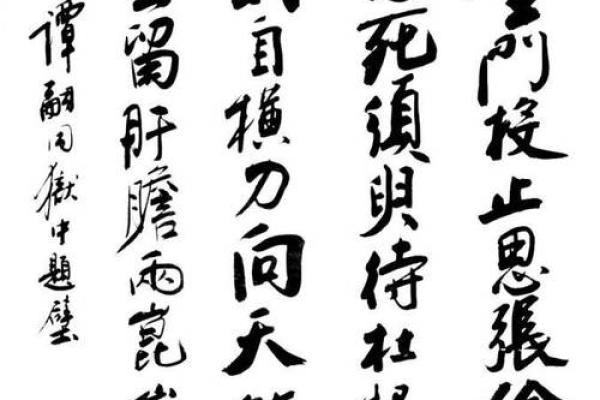 門投止思張
死須臾待杜
自橫刀向天
留肝膽兩崑
譚嗣同獄中題壁